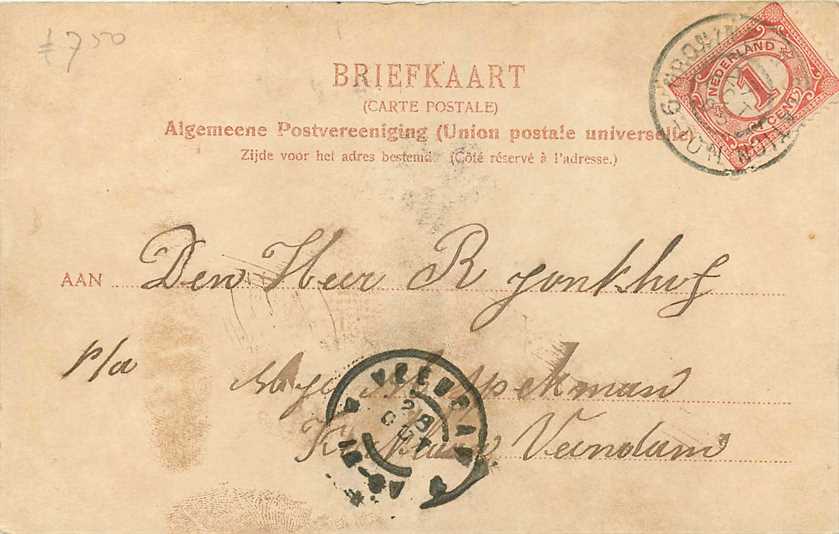 ƒ 750
BRIEFKAART
(CARTE POSTALE)
Algemeene Postvereeniging (Union postale universelle)
Zijde voor het adres bestemd (Côté réservé à l'adresse.)
NEDERLAND
1
CENT
AAN Den Heer R Jonkhof
p/a
Veendam
VEENDAM
28
OCT